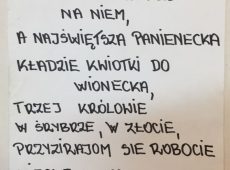 NA NIEM,
A NAJŚWIĘTSZA PANIENECKA
KŁADZIE KWIOTKI DO
WIONECKA,
TRZEJ KRÓLOWIE
W ŚRYBRZE, W ZŁOCIE,
PRZYZIRAJOM SIE ROBOCIE